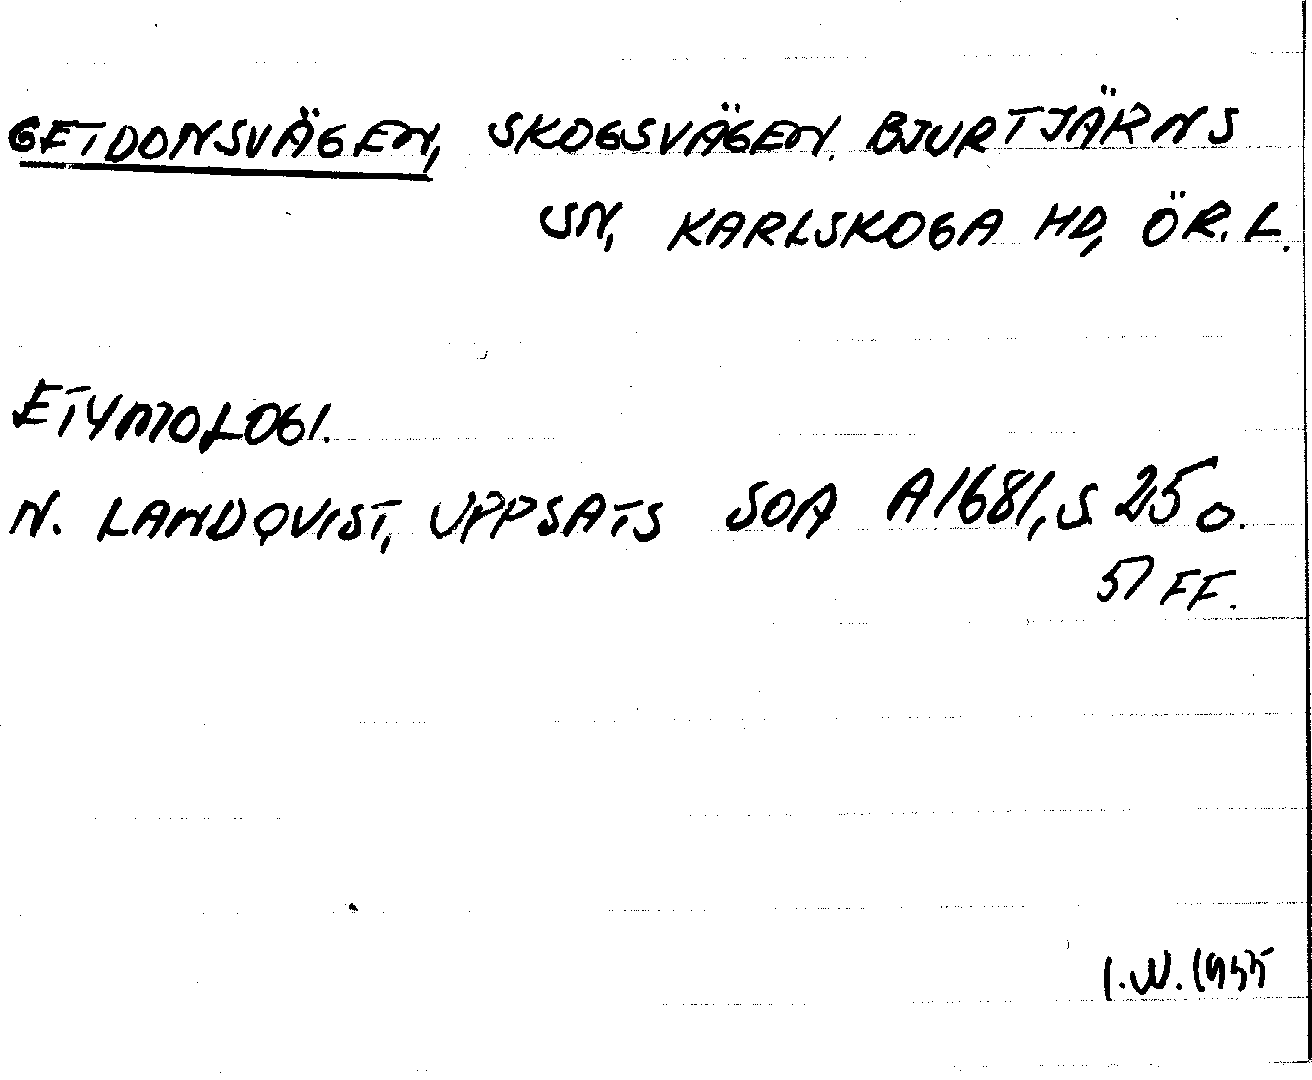 GETDONSVÄGEN, SKOGSVÄGEN. BJURTJÄRNS
SN, KARLSKOGA HD, ÖR. L.
ETYMOLOGI.
N. LANDQVIST, UPPSATS SOA A1681, S 25 O.
57 FF.
I.W. 1955